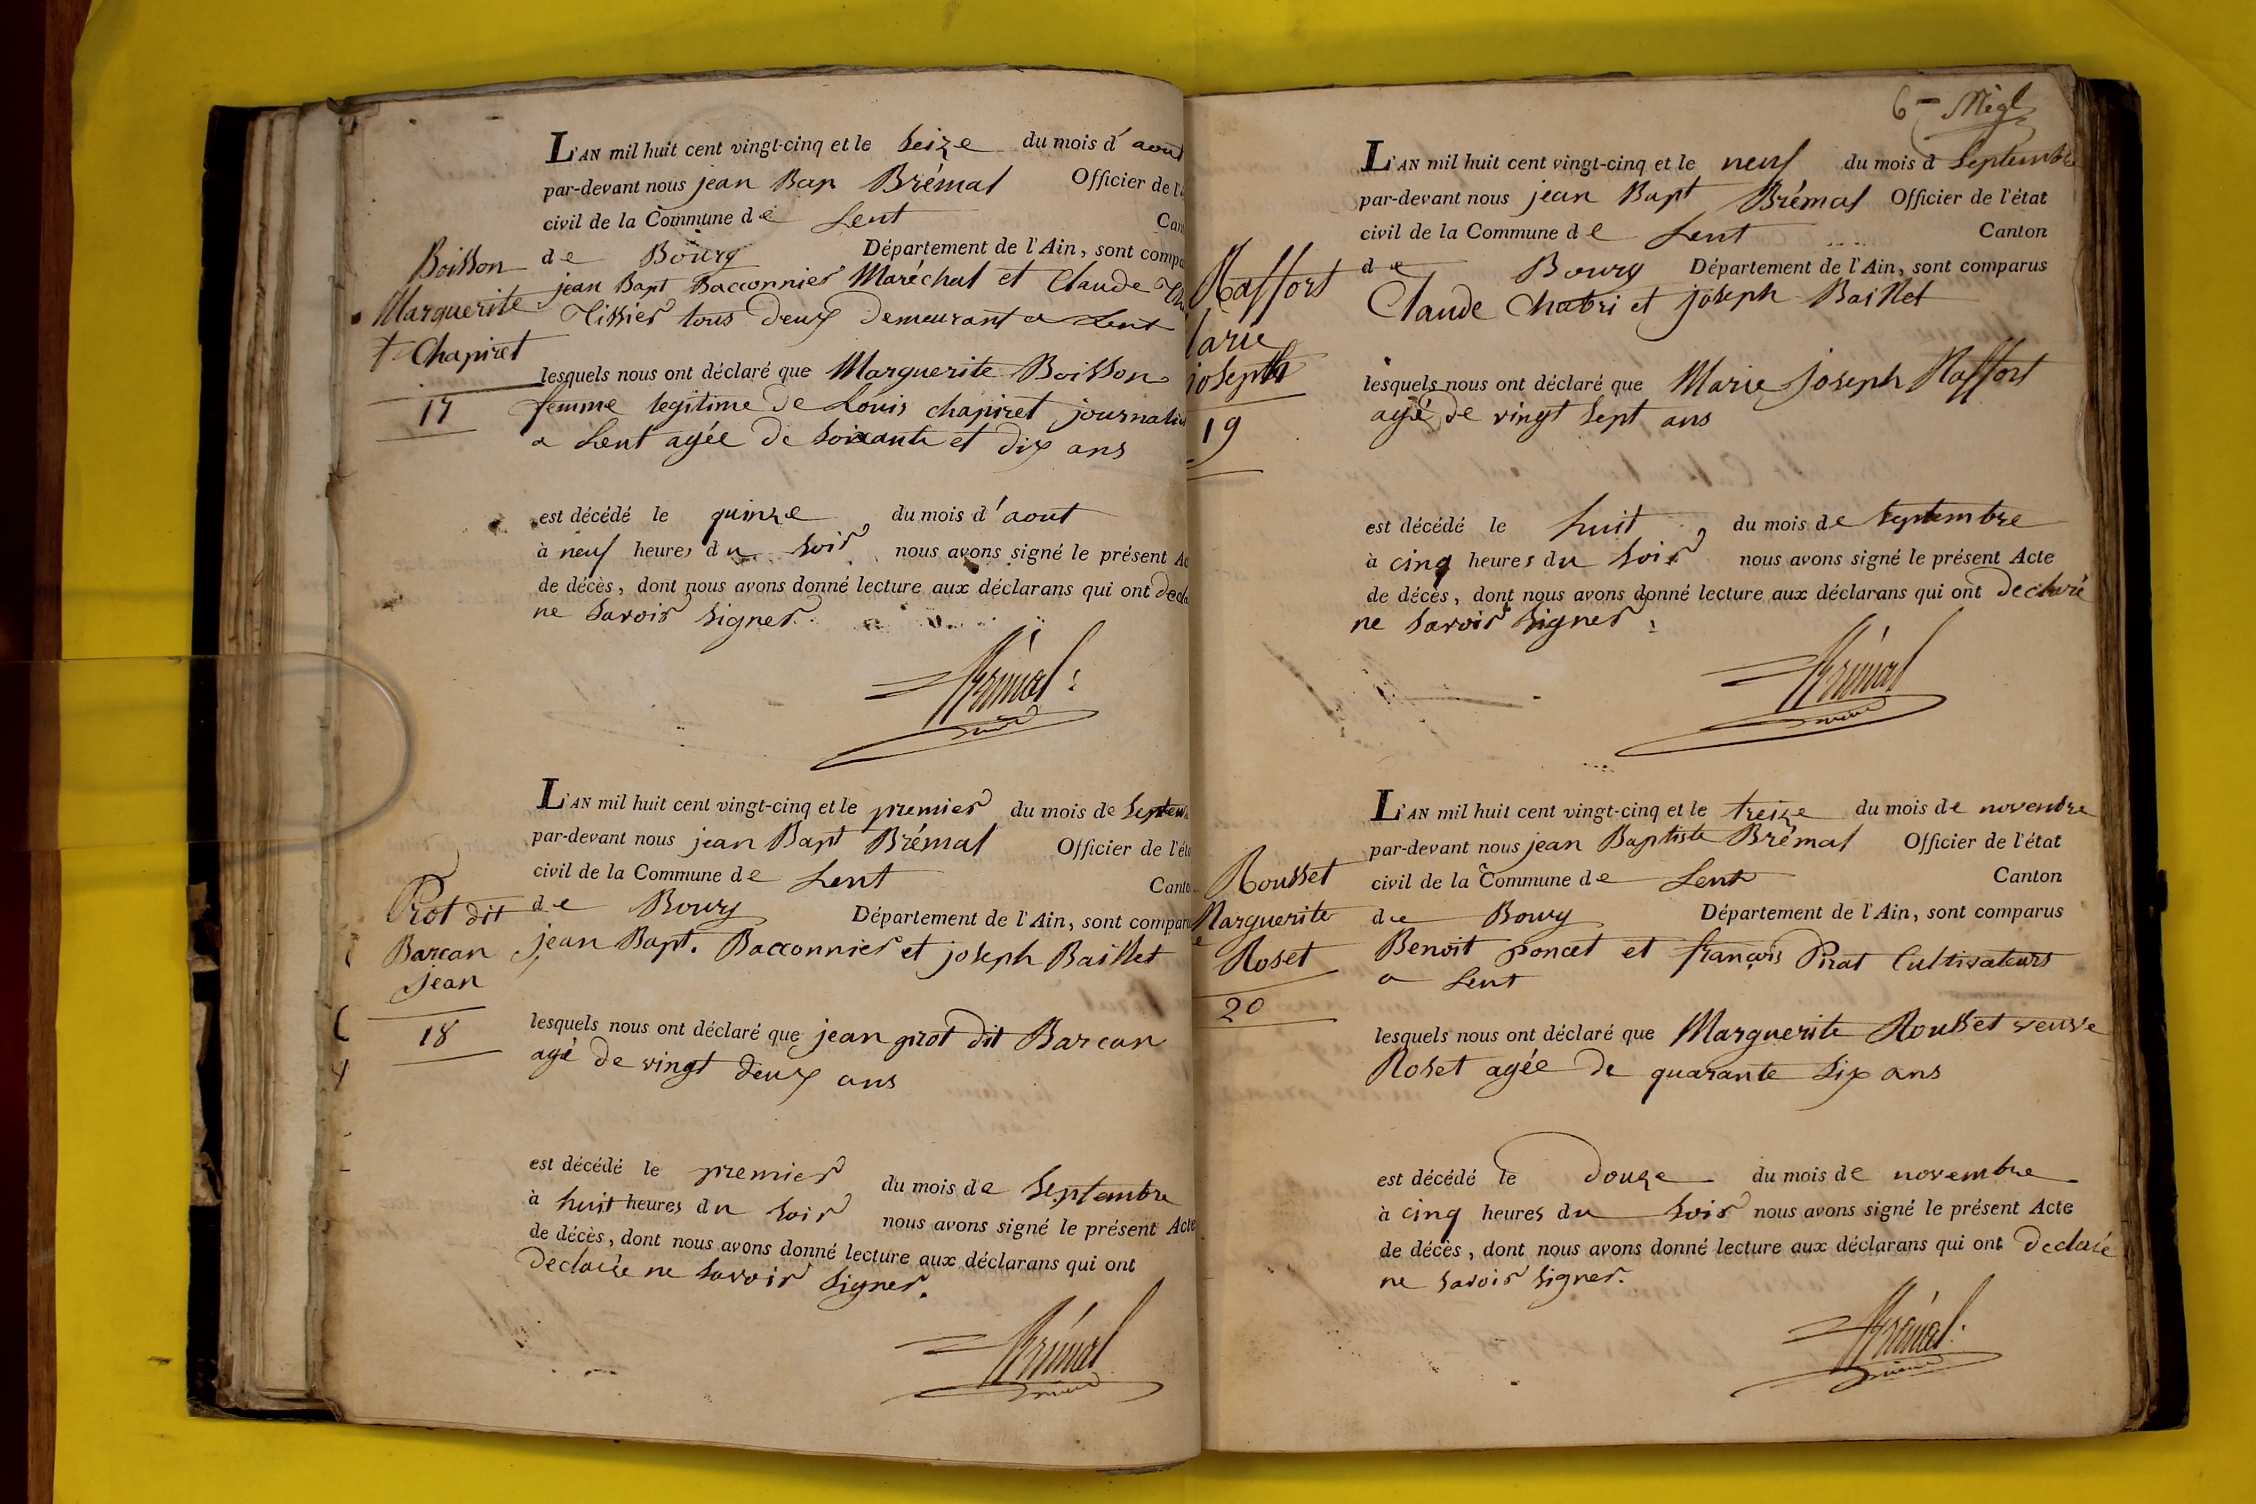 L'AN mil huit cent vingt-cinq et le seize du mois d'aout
par-devant nous jean Bap Brémal Officier de l'
civil de la Commune de Lent Can
de Bourg Département de l'Ain, sont compa
jean Bapt Bacconnier Maréchal et Claude
Tissier tous deux demeurant a Lent
Boisson
Marguerite
f Chapiret
17
lesquels nous ont déclaré que Marguerite Boisson
femme legitime de Louis chapiret journalie
a Lent agée de soixante et dix ans
est décédé le quinze du mois d'aout
à neuf heures du soir nous avons signé le présent Ac
de décès, dont nous avons donné lecture aux déclarans qui ont decla
ne savoir signer.
Brémal
maire
L'AN mil huit cent vingt-cinq et le premier du mois de septem
par-devant nous jean Bapt Brémal Officier de l'éta
civil de la Commune de Lent Canto
de Bourg Département de l'Ain, sont comparu
jean Bapt. Bacconnier et joseph Baillet
Prot dit
Barcan
Jean
18
lesquels nous ont déclaré que jean prot dit Barcan
agé de vingt deux ans
est décédé le premier du mois de septembre
à huit heures du soir nous avons signé le présent Acte
de décès, dont nous avons donné lecture aux déclarans qui ont
declarée ne savoir signer.
Brémal
maire
6
L'AN mil huit cent vingt-cinq et le neuf du mois d septembre
par-devant nous jean Bapt Brémal Officier de l'état
civil de la Commune de Lent Canton
de Bourg Département de l'Ain, sont comparus
Claude Chabri et joseph Baillet
Raffort
Marie
joseph
19
lesquels nous ont déclaré que Marie joseph Raffort
agé de vingt sept ans
est décédé le huit du mois de septembre
à cinq heures du soir nous avons signé le présent Acte
de décès, dont nous avons donné lecture aux déclarans qui ont declaré
ne savoir signer.
Brémal
maire
L'AN mil huit cent vingt-cinq et le treize du mois de novembre
par-devant nous jean Baptiste Brémal Officier de l'état
civil de la Commune de Lent Canton
de Bourg Département de l'Ain, sont comparus
Benoit poncet et françois Pirat Cultivateurs
a Lent
Rousset
Marguerite
Roset
20
lesquels nous ont déclaré que Marguerite Rousset veuve
Roset agée de quarante six ans
est décédé le douze du mois de novembre
à cinq heures du soir nous avons signé le présent Acte
de décès, dont nous avons donné lecture aux déclarans qui ont declarée
ne savoir signer.
Brémal
maire